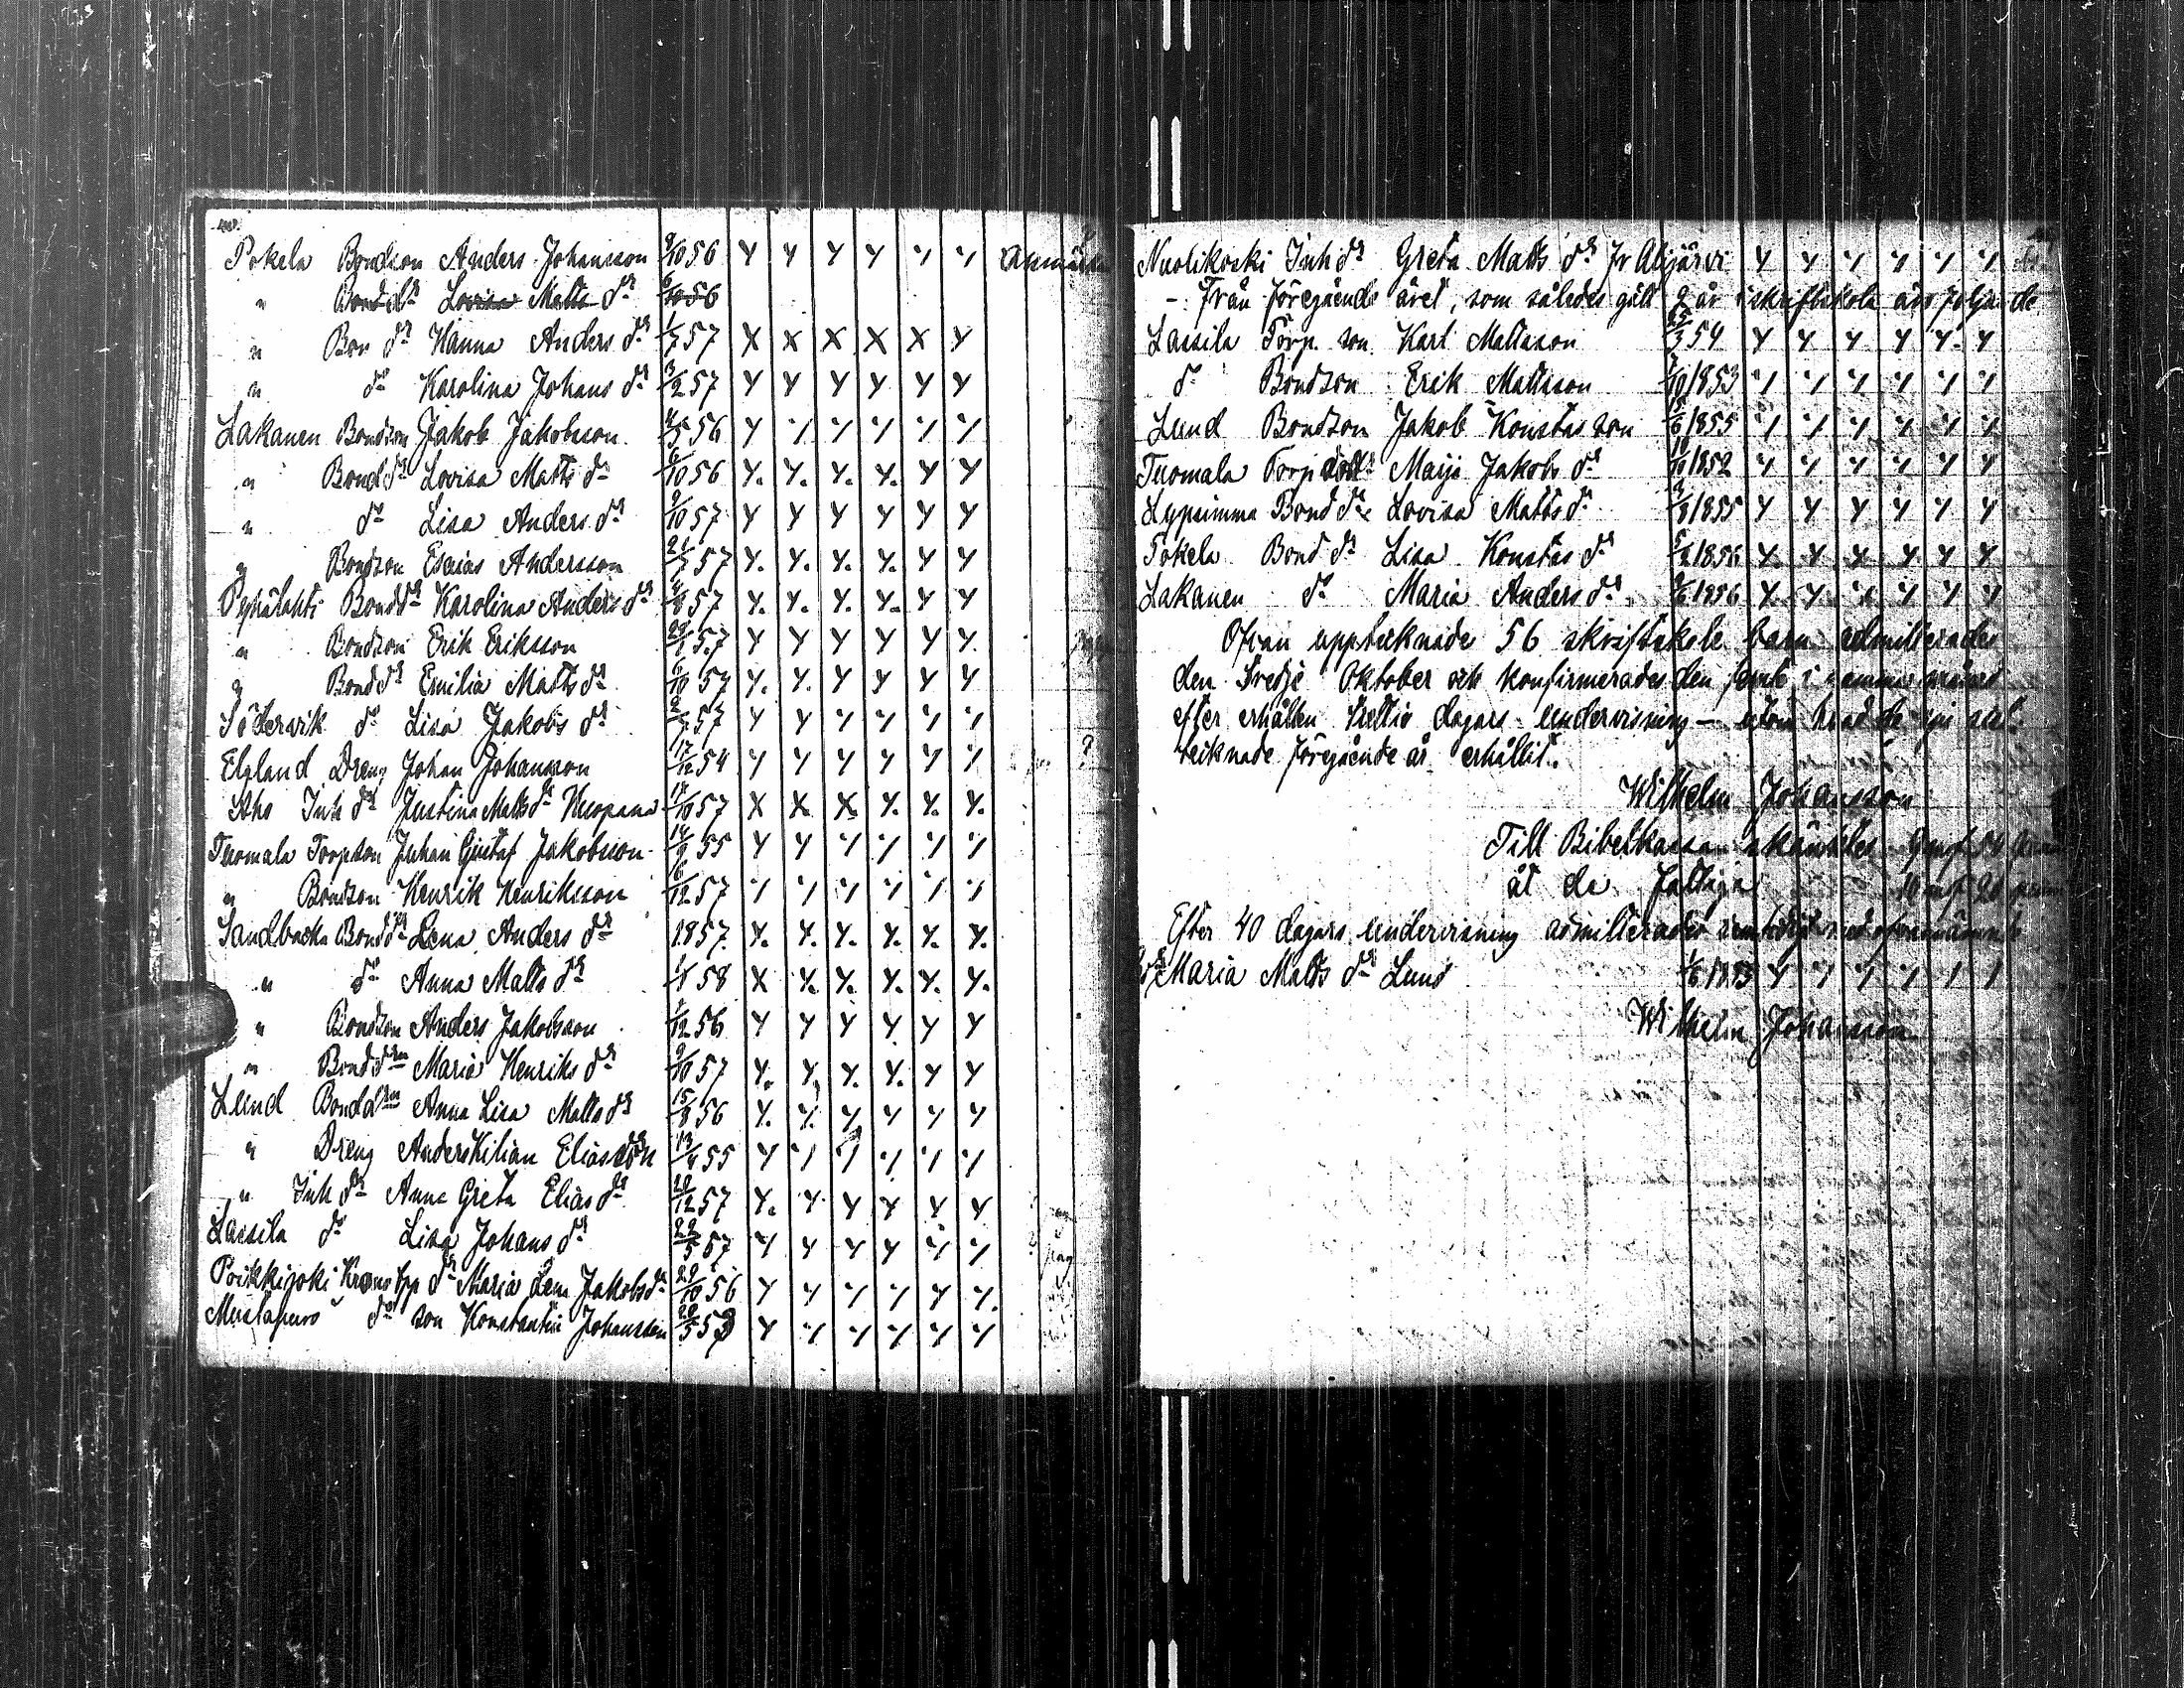 Pokela Bondson Anders Johansson 9/10 56 Anmärkn
" Bond dr Lovisa Matts dr 6/10 56
" Bon dr Hanna Anders dr 1/7 57
" do Karolina Johans dr 3/2 57
Lakanen Bondson Jakob Jakobsson 4/5 56
" Bond dr Lovisa Matts dr 6/10 56
" do Lisa Anders dr 9/10 57
" Bondson Esaias Andersson 21/7 57
Pyhälahti Bond dr Karolina Anders dr 4/8 57
" Bondson Erik Eriksson 57
" Bond dr Emilia Matts dr 6/10 57
Södervik do Lisa Jakobs dr 57
Elgland Dreng Johan Johansson 17/12 54
Aho Inh dr Justina Matts dr Kuopana 18/10 57
Tuomala Torpson Johan Gustaf Jakobsson 14/9 55
" Bondson Henrik Henriksson 6/12 57
Sandbacka Bond dr Lena Anders dr 1857
" do Anna Matts dr 58
" Bondson Anders Jakobsson 1/12 56
" Bond drn Maria Henriks dr 9/10 57
Lund Bond drn Anna Lisa Matts dr 15/8 56
" Dreng Anders Kilian Eliasson 13/4 55
" Inh dr Anna Greta Elias dr 20/12 57
Lassila do Lisa Johans dr 22/5 57
Poikkijoki Krons tpp dr Maria Lena Jakobs dr 29/10 56
Mustapuro do son Konstantin Johansson 22/5 53
Nuolikoski Inh dr Greta Matts dr fr Alajärvi
- Från föregående året, som således gått 2 år i skriftskola äro följande
Lassila Torp. son Karl Mattsson 25/3 54
do Bondson Erik Mattsson /10 1853
Lund Bondson Jakob Konstas son 13/6 1855
Tuomala Torp dott Maja Jakobs dr 18/10 1852
Lypsimma Bond dr Lovisa Matts dr /8 1855
Pokela Bond dr Lisa Konstas dr 5/2 1856
Lakanen do Maria Anders dr /6 1856
Ofvan upptecknade 56 skriftskole barn admitterades
den tredje Oktober och konfirmerades den femte i samma månad
efter erhållen trettio dagars undervisning — utom hvad de
tecknade föregående år erhållit.
Wilhelm Johansson
Till Bibelkassan skänktes 9 mf 54
åt de fattiga 10 mf 20
Efter 40 dagars undervisning admitterades med ofvannämnde
Maria Matts dr Lund 1/6 1853
Wilhelm Johansson